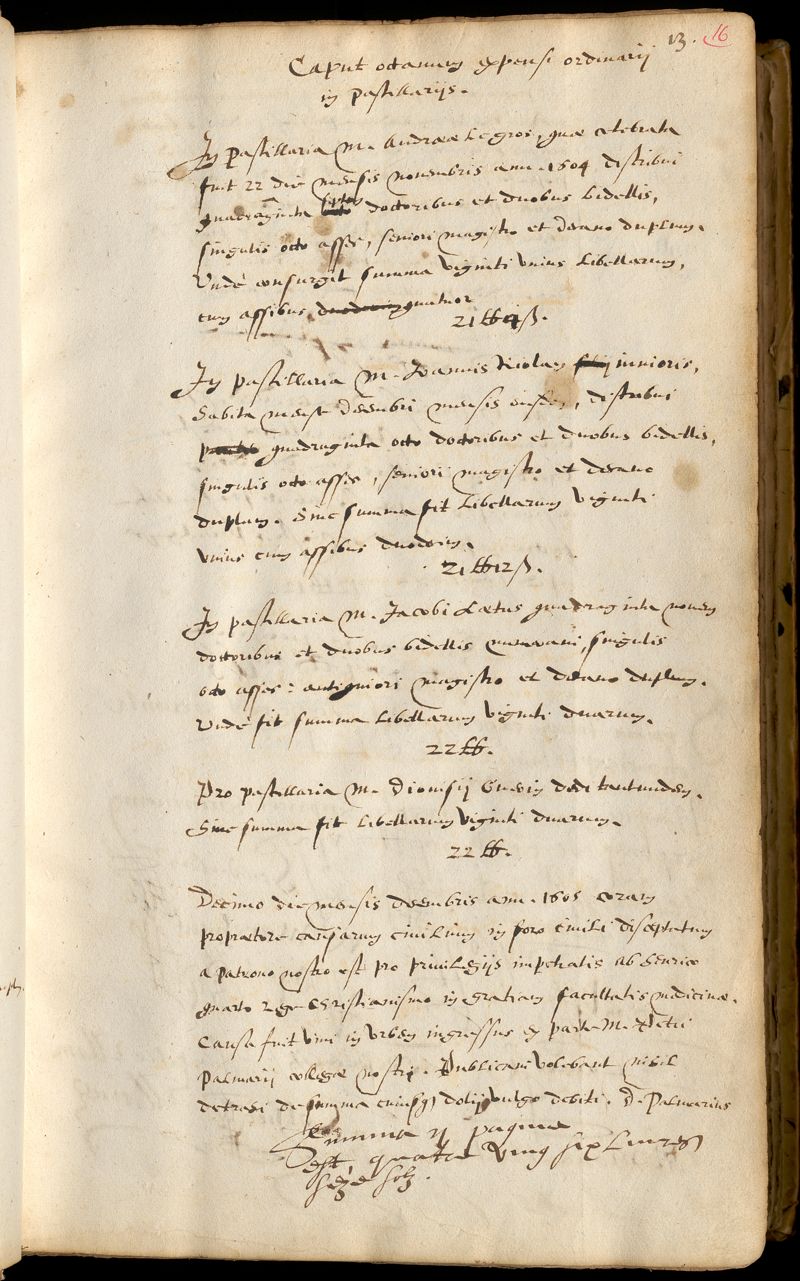 13. 16
Caput octavum expensi ordinarij
in Pastillarijs.
In Pastillaria M. Andreae Legros, quae celebrata
fuit 22 die mensis novembris ann. 1604 distribui
quadraginta septem doctoribus et duobus bidellis,
singulis octo asses, seniori magistro et decano duplum.
Unde consurgit summa viginti unius libellarum,
cum assibus quatuor
21 ℔ 4 ß.
In pastillaria M. Joannis Nicolai junioris,
habita mense decembri mensis eiusdem, distribui
quadraginta octo doctoribus et duobus bidellis,
singulis octo asses, seniori magistro et decano
duplum. Hinc summa fit libellarum viginti
unius cum assibus duodecim.
21 ℔ 12 ß.
In pastillaria M. Jacobi Laetus quadraginta novem
doctoribus et duobus bidellis numeravi, singulis
octo asses: antiquiori magistro et decano duplum.
Unde fit summa libellarum viginti duarum.
22 ℔.
Pro pastillaria M. Dionisij dedi tantundem.
Hinc summa fit libellarum viginti duarum.
22 ℔.
Decimo die mensis decembris ann. 1605 coram
propraetore causarum civilium in foro civili disceptatum
a patrono nostro est pro privilegijs impetratis ab Henrico
quarto rege Christianissimo in gratiam facultatis medicinae.
Causa fuit vini in urbem ingressus ex parte M. Petri
Palmarij collegae nostri. Publicani volebant nihil
detrahi de summa cuiusque dolij vulgo debiti. D. Palmarius
Summa ij paginae
est quatre vingt six livres
seze solz.